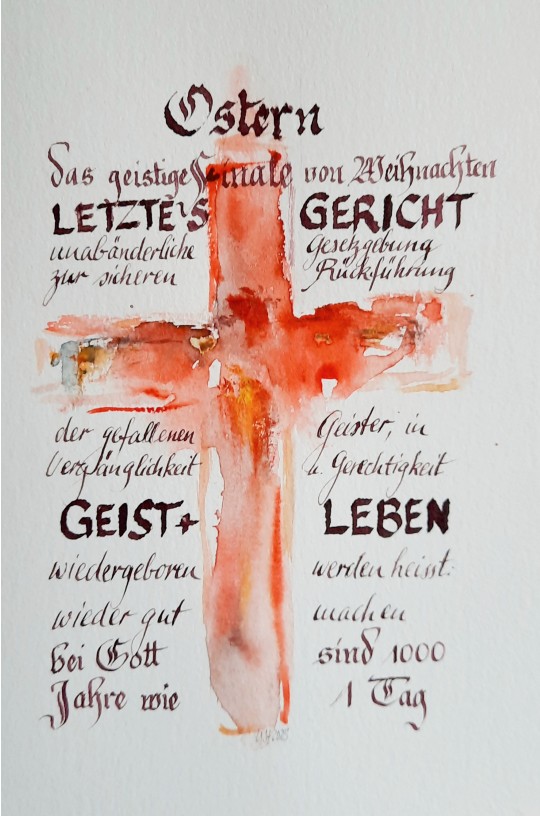 Ostern
Das geistige Finale von Weihnachten
LETZTES GERICHT
unabänderliche Gesetzgebung
zur sicheren Rückführung
der gefallenen Geister, in
Vergänglichkeit u. Gerechtigkeit
GEIST+ LEBEN
wiedergeboren werden heisst:
wieder gut machen
bei Gott sind 1000
Jahre wie 1 Tag